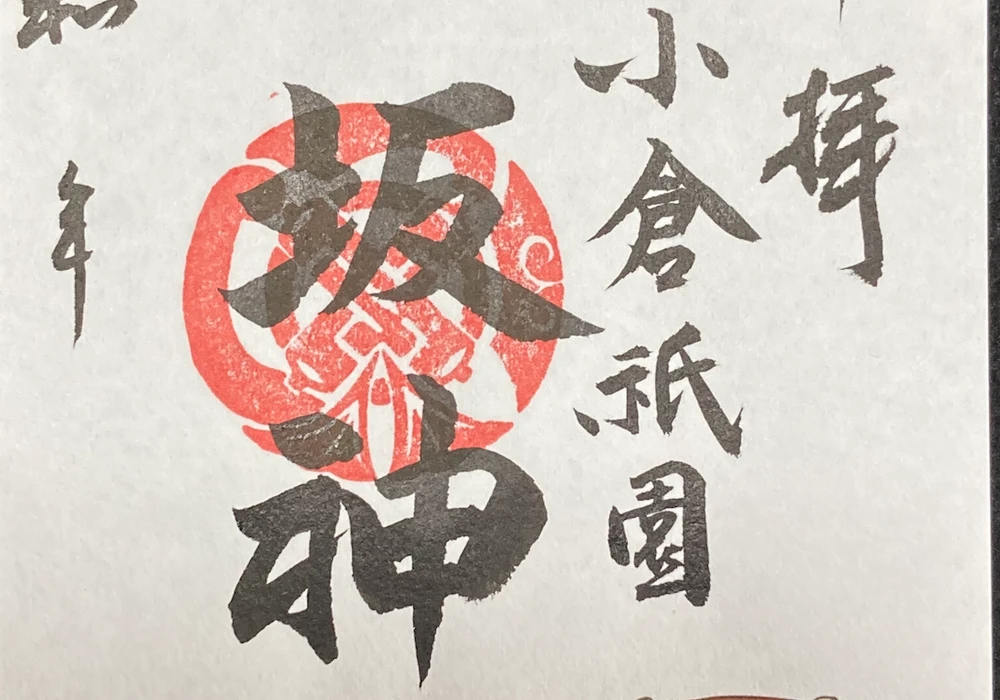 拝
小倉祇園
坂神
年